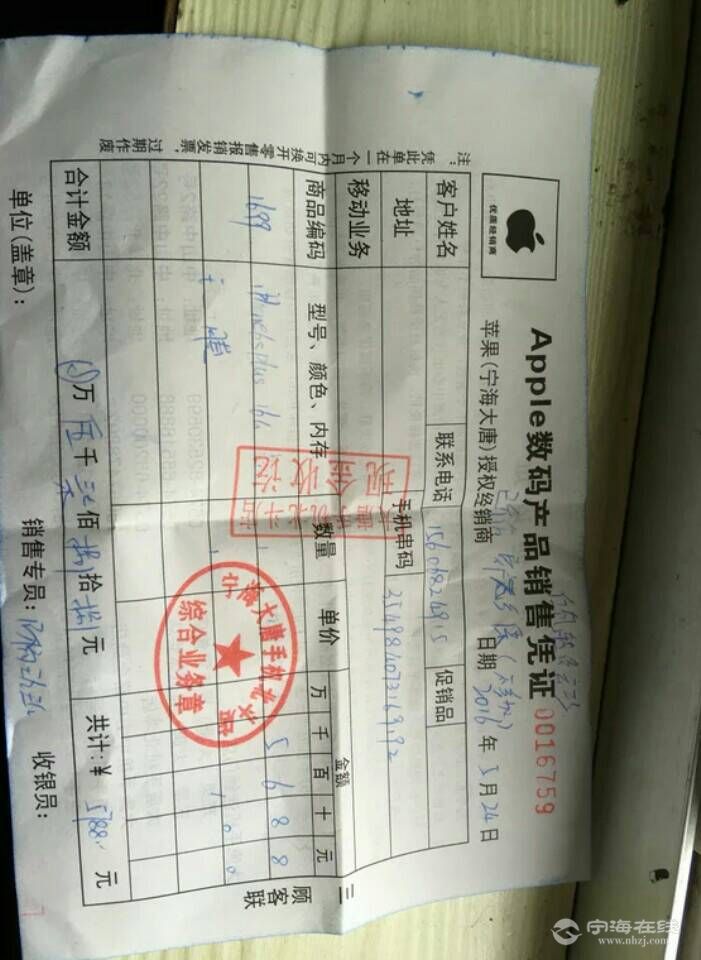 优质经销商
Apple数码产品销售凭证
0016759
苹果(宁海大唐)授权经销商
日期 2016 年 5 月 24 日
客户姓名 联系电话 促销品
地址 手机串码
移动业务
商品编码 型号、颜色、内存 数量 单价 金额
万 千 百 十 元
1699 5 6 8 8
膜 1 0 0
合计金额 万 伍 千 佰 拾 元 共计:¥ 5788 元
单位(盖章): 销售专员: 收银员:
注:凭此单在一个月内可换开零售报销发票,过期作废
三 顾客联
现金收讫
综合业务章
宁海在线
www.nhzj.com